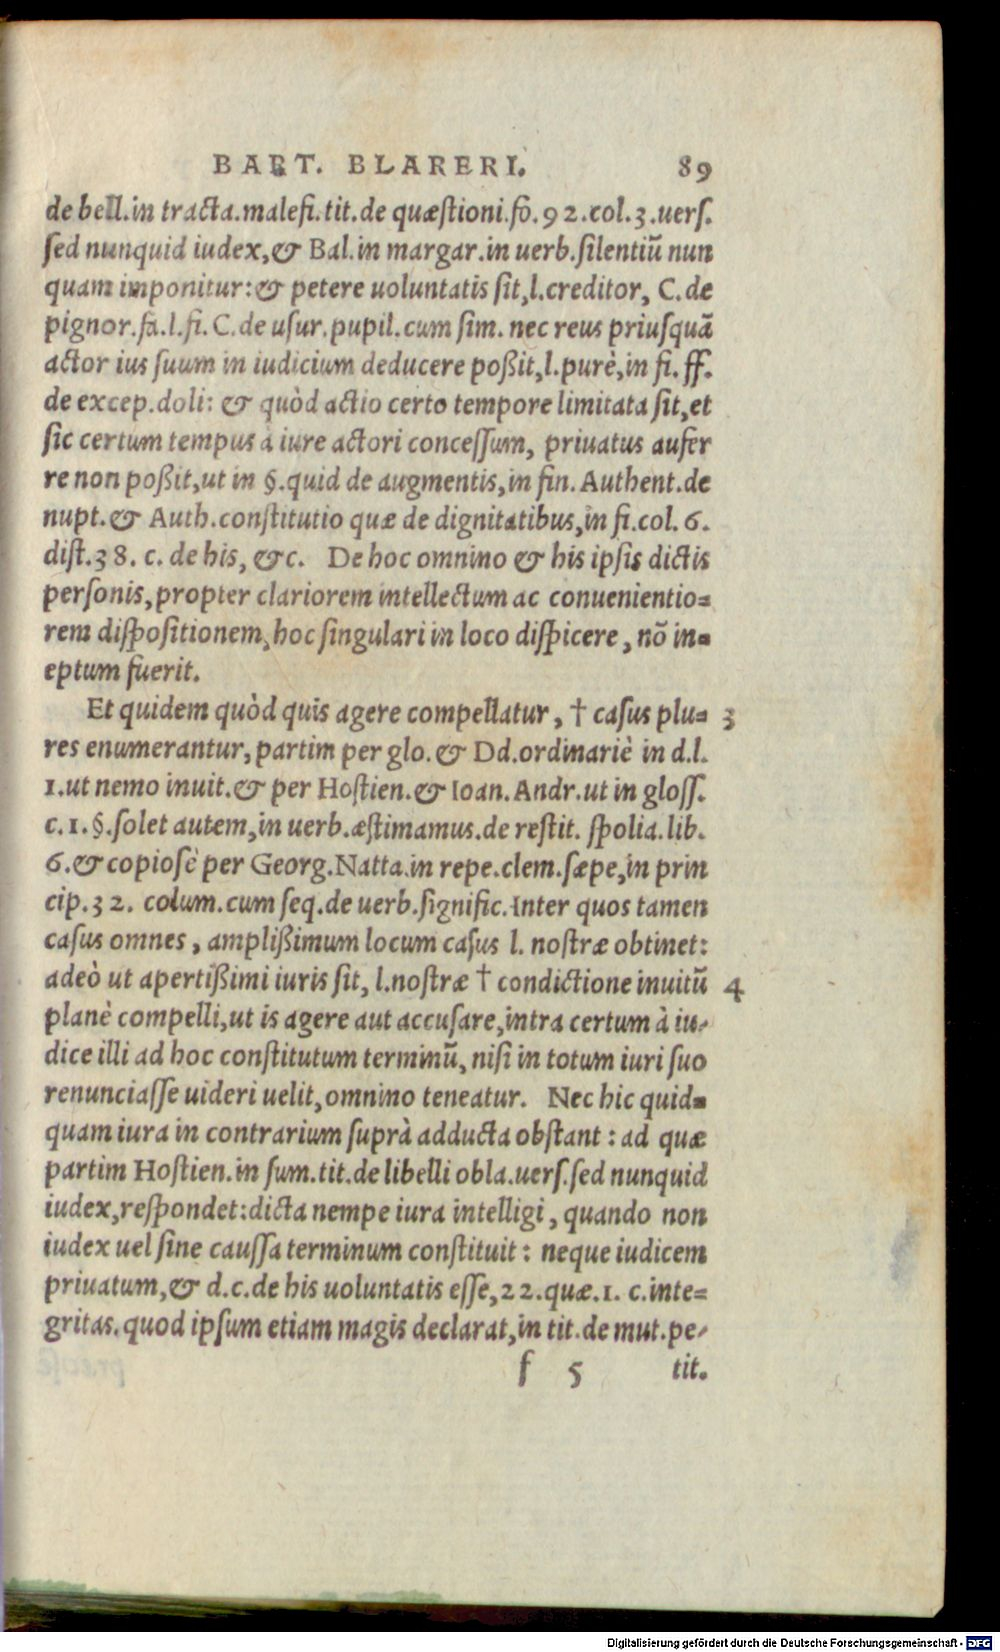 BART. BLARERI. 89
de bell.in tracta.malefi.tit.de quæstioni.fo.92.col.3.uers.
sed nunquid iudex,& Bal.in margar.in uerb.silentiũ nun
quam imponitur:& petere uoluntatis sit,l.creditor, C.de
pignor.fa.l.fi.C.de usur.pupil.cum sim. nec reus priusquã
actor ius suum in iudicium deducere poßit,l.purè,in fi.ff.
de excep.doli: & quòd actio certo tempore limitata sit,et
sic certum tempus à iure actori concessum, priuatus aufer
re non poßit,ut in §.quid de augmentis,in fin.Authent.de
nupt.& Auth.constitutio quæ de dignitatibus,in fi.col.6.
dist.38. c. de his, &c. De hoc omnino & his ipsis dictis
personis,propter clariorem intellectum ac conuenientio=
rem dispositionem,hoc singulari in loco dispicere, nõ in=
eptum fuerit.
Et quidem quòd quis agere compellatur, † casus plu= 3
res enumerantur,partim per glo.& Dd.ordinariè in d.l.
1.ut nemo inuit.& per Hostien.& Ioan.Andr.ut in gloss.
c.1.§.solet autem,in uerb.æstimamus.de restit. spolia.lib.
6.& copiosè per Georg.Natta.in repe.clem.sæpe,in prin
cip.32. colum.cum seq.de uerb.signific.Inter quos tamen
casus omnes, amplißimum locum casus l. nostræ obtinet:
adeò ut apertißimi iuris sit, l.nostræ † condictione inuitũ 4
planè compelli,ut is agere aut accusare,intra certum à iu-
dice illi ad hoc constitutum terminũ, nisi in totum iuri suo
renunciasse uideri uelit,omnino teneatur. Nec hic quid=
quam iura in contrarium suprà adducta obstant: ad quæ
partim Hostien.in sum.tit.de libelli obla.uers.sed nunquid
iudex,respondet:dicta nempe iura intelligi, quando non
iudex uel sine caussa terminum constituit: neque iudicem
priuatum,& d.c.de his uoluntatis esse,22.quæ.1. c.inte=
gritas.quod ipsum etiam magis declarat,in tit.de mut.pe-
f 5 tit.
Digitalisierung gefördert durch die Deutsche Forschungsgemeinschaft - DFG